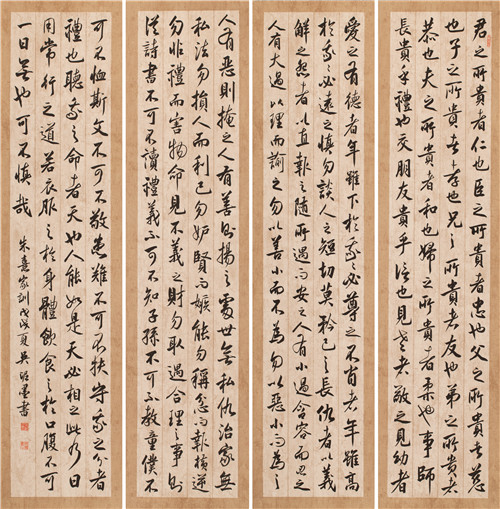 君之所貴者仁也臣之所貴者忠也父之所貴者慈
也子之所貴者孝也兄之所貴者友也弟之所貴者
恭也夫之所貴者和也婦之所貴者柔也事師
長貴乎禮也交朋友貴乎信也見老者敬之見幼者
愛之有德者年雖下於我我必尊之不肖者年雖高
於我我必遠之慎勿談人之短切莫矜己之長仇者以義
解之怨者以直報之隨所遇而安之人有小過含容而忍之
人有大過以理而諭之勿以善小而不為勿以惡小而為之
人有惡則掩之人有善則揚之處世無私仇治家無
私法勿損人而利己勿妒賢而嫉能勿稱忿而報橫逆
勿非禮而害物命見不義之財勿取遇合理之事則
從詩書不可不讀禮義不可不知子孫不可不教童僕不
可不恤斯文不可不敬患難不可不扶守我之分者
禮也聽我之命者天也人能如是天必相之此乃日
用常行之道若衣服之於身體飲食之於口腹不可
一日無也可不慎哉 朱熹家訓戊戌夏吴墨書